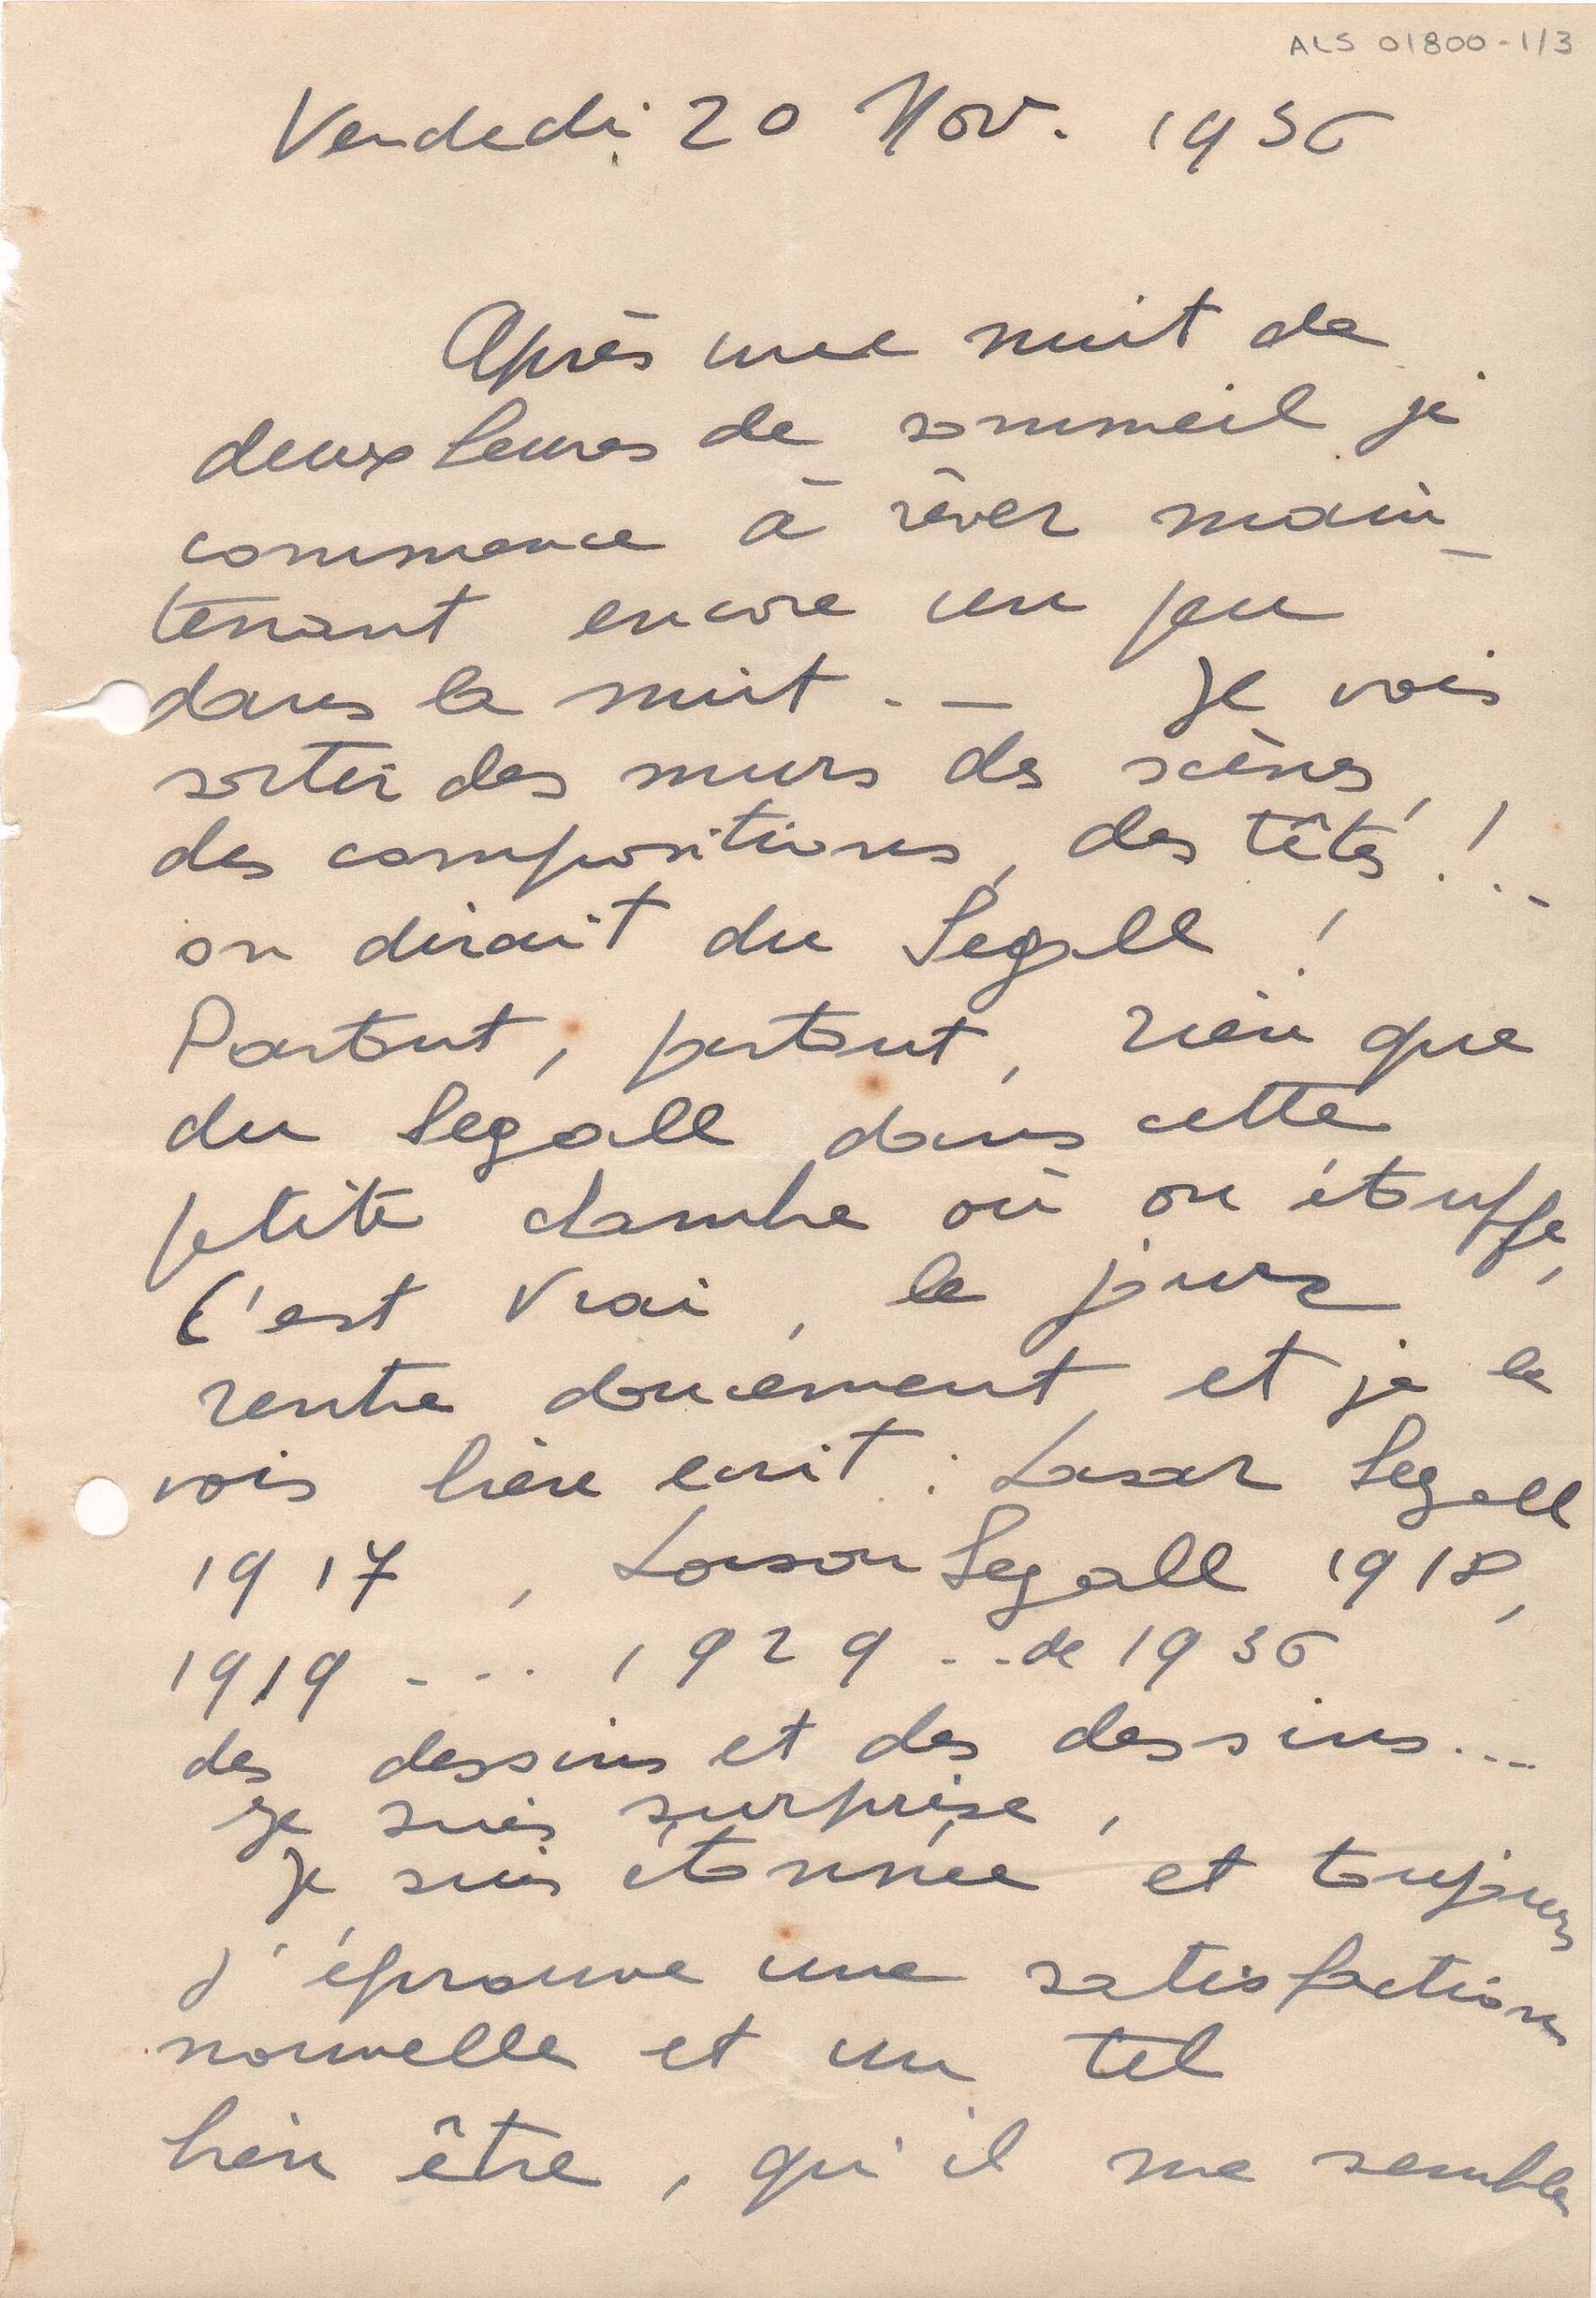 ALS 01800-1/3
Vendedi 20 Nov. 1936
Après une nuit de
deux heures de sommeil je
commence à rêver main-
tenant encore un peu
dans la nuit. — Je vois
sortir des murs des scènes,
des compositions, des têtes!..-
on dirait du Segall!
Partout, partout, rien que
du Segall dans cette
petite chambre où on étouffe,
C'est vrai, le jour
rentre doucement et je le
vois bien ecrit: Lasar Segall
1917, Lasar Segall 1918,
1919 - - . 1929 - . . de 1936
des dessins et des dessins...
Je suis surprise,
Je suis étonnée et toujours
j'éprouve une satisfaction
nouvelle et un tel
bien être, qu'il me semble